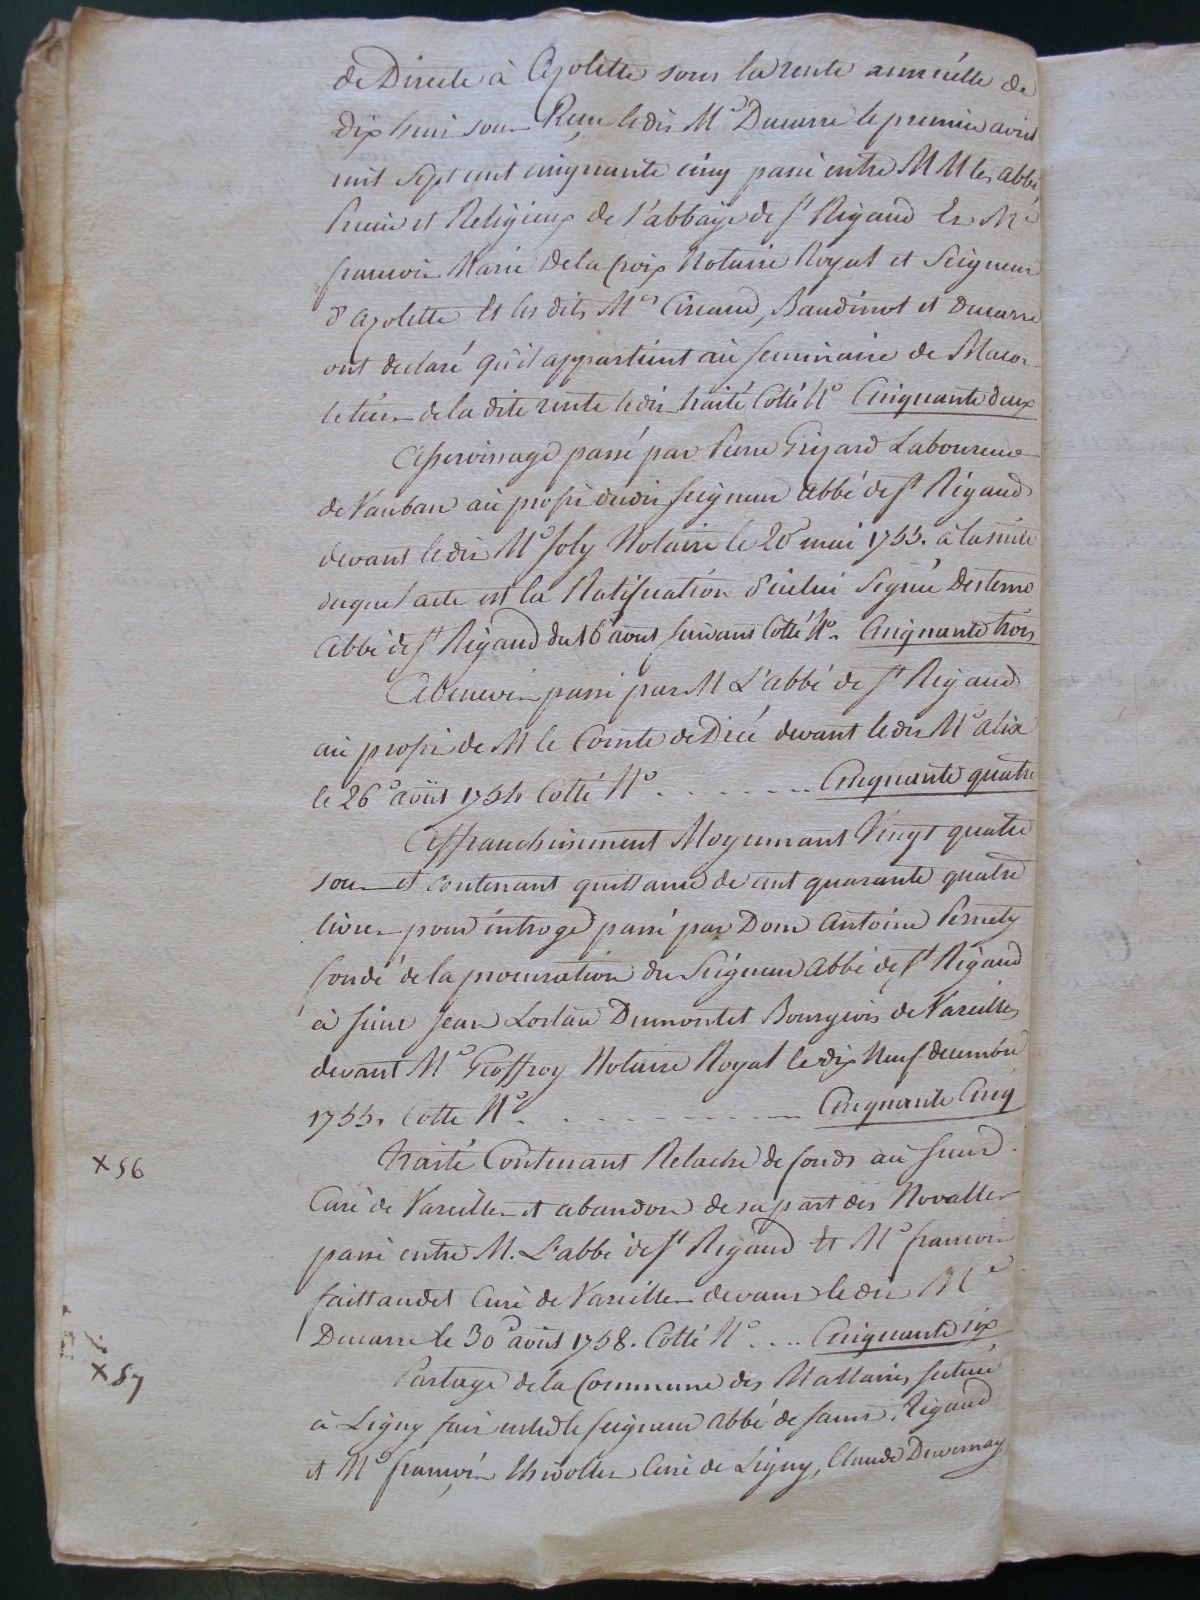 de Directe à Azolette sous la rente annuelle de
dix huit sous Reçu ledit Me Ducarre le premier avril
mil sept cent cinquante cinq passé entre M M les abbé
Prieur et Religieux de l'abbaÿe de St Rigaud Et Me
francois Marie Delacroix Notaire Royal et Seigneur
d'azolette Et les dits Mes Circaud, Baudinot et Ducarre
ont declaré qu'il appartient au Seminaire de Macon
le tiers de la dite rente ledit traité Cotté No Cinquante deux
Asservissage passé par Pierre Grizard Laboureur
de Vauban au profit dudit Seigneur abbé de St Rigaud
devant ledit Me Joly Notaire le 20 mai 1755. à la suite
duquel acte est la Ratification d'icelui Signée Desterno
abbé de St Rigaud du 16 aout suivant Cotté No. Cinquante trois
Abenevis passé par M L'abbé de St Rigaud
au profit de M le Comte de Drée devant ledit Me alix
le 26e août 1754 Cotté No . . . . . . . Cinquante quatre
Affranchissement Moyennant Vingt quatre
sous et contenant quittance de cent quarante quatre
livres pour introge passé par Dom Antoine Pernety
fondé de la procuration du Seigneur abbé de St Rigaud
à sieur Jean Dumontet Bourgeois de Vareilles
devant Me Geoffroy Notaire Royal le dix Neuf decembre
1755. Cotté No . . . . . . . . . Cinquante Cinq
X 56
traité Contenant Relache de fonds au sieur
Curé de Vareilles et abandon de sa part des Novalles
passé entre M. L'abbé de St Rigaud Et Me francois
faittaudet Curé de Vareilles devant ledit Me
Ducarre le 30e août 1758. Cotté No . . . . Cinquante six
X 57
Partage de la Commune des Mattains, scituée
à Ligny fait entre le seigneur abbé de saint Rigaud
et Me francois Curé de Ligny, Claude Duvernay